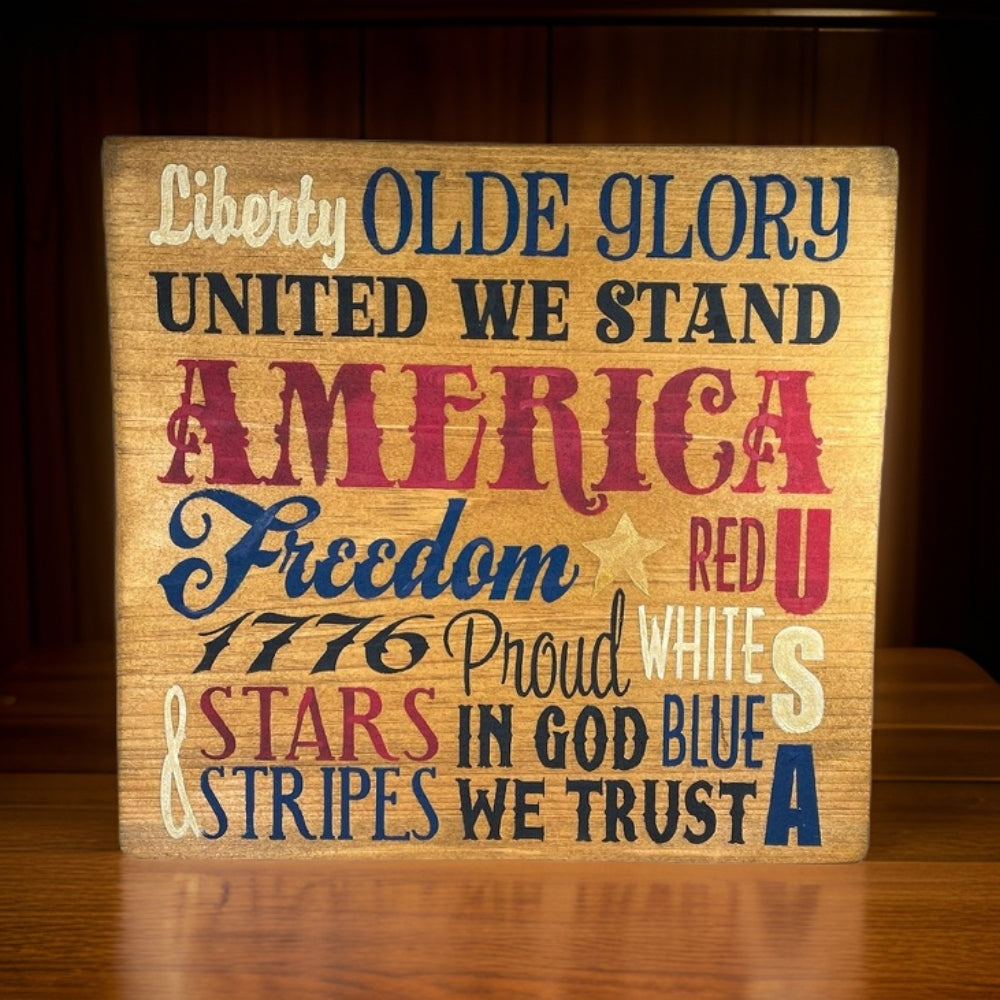 Liberty OLDE GLORY
UNITED WE STAND
AMERICA
Freedom
RED
WHITE
BLUE
USA
1776 Proud
STARS
& STRIPES
IN GOD
WE TRUST